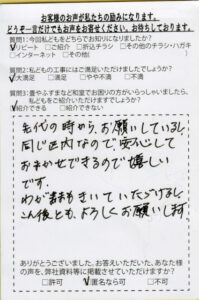 お客様のお声が私たちの励みになります。
どうぞ一言だけでもお声をお寄せください。お待ちしております。
質問1:今回私どもをどちらでお知りになりましたか?
☑リピート □ご紹介 □折込チラシ □その他のチラシ・ハガキ
□インターネット □その他(
質問2:私どもの工事にはご満足いただけましたでしょうか?
☑大満足 □満足 □やや不満 □不満
質問3:畳やふすまなど和室でお困りの方がいらっしゃいましたら、
私どもをご紹介いただけますでしょうか?
☑紹介できる □紹介できない
先代の時から、お願いしているし
同じ区内なので安心して
おまかせできるので嬉しい
です。
わがままもきいていただけるし
こん後とも、よろしくお願いします
ありがとうございました。お答えいただいた、あなた様
の声を、弊社資料等に掲載させていただけますか?
□許可 ☑匿名なら可 □不可